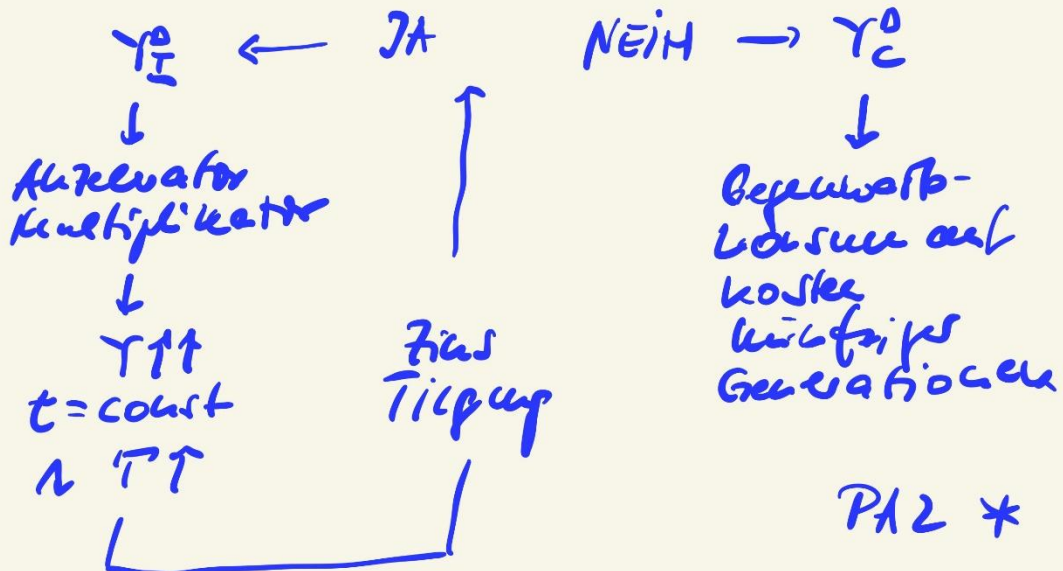 Y^D_I ← JA NEIN → Y^D_C
↓ ↓
Akzelerator
Multiplikator
↓
Y↑↑
t = const
T↑
Zins
Tilgung
Gegenwarts-
konsum auf
Kosten
künftiger
Generationen
PA2 *